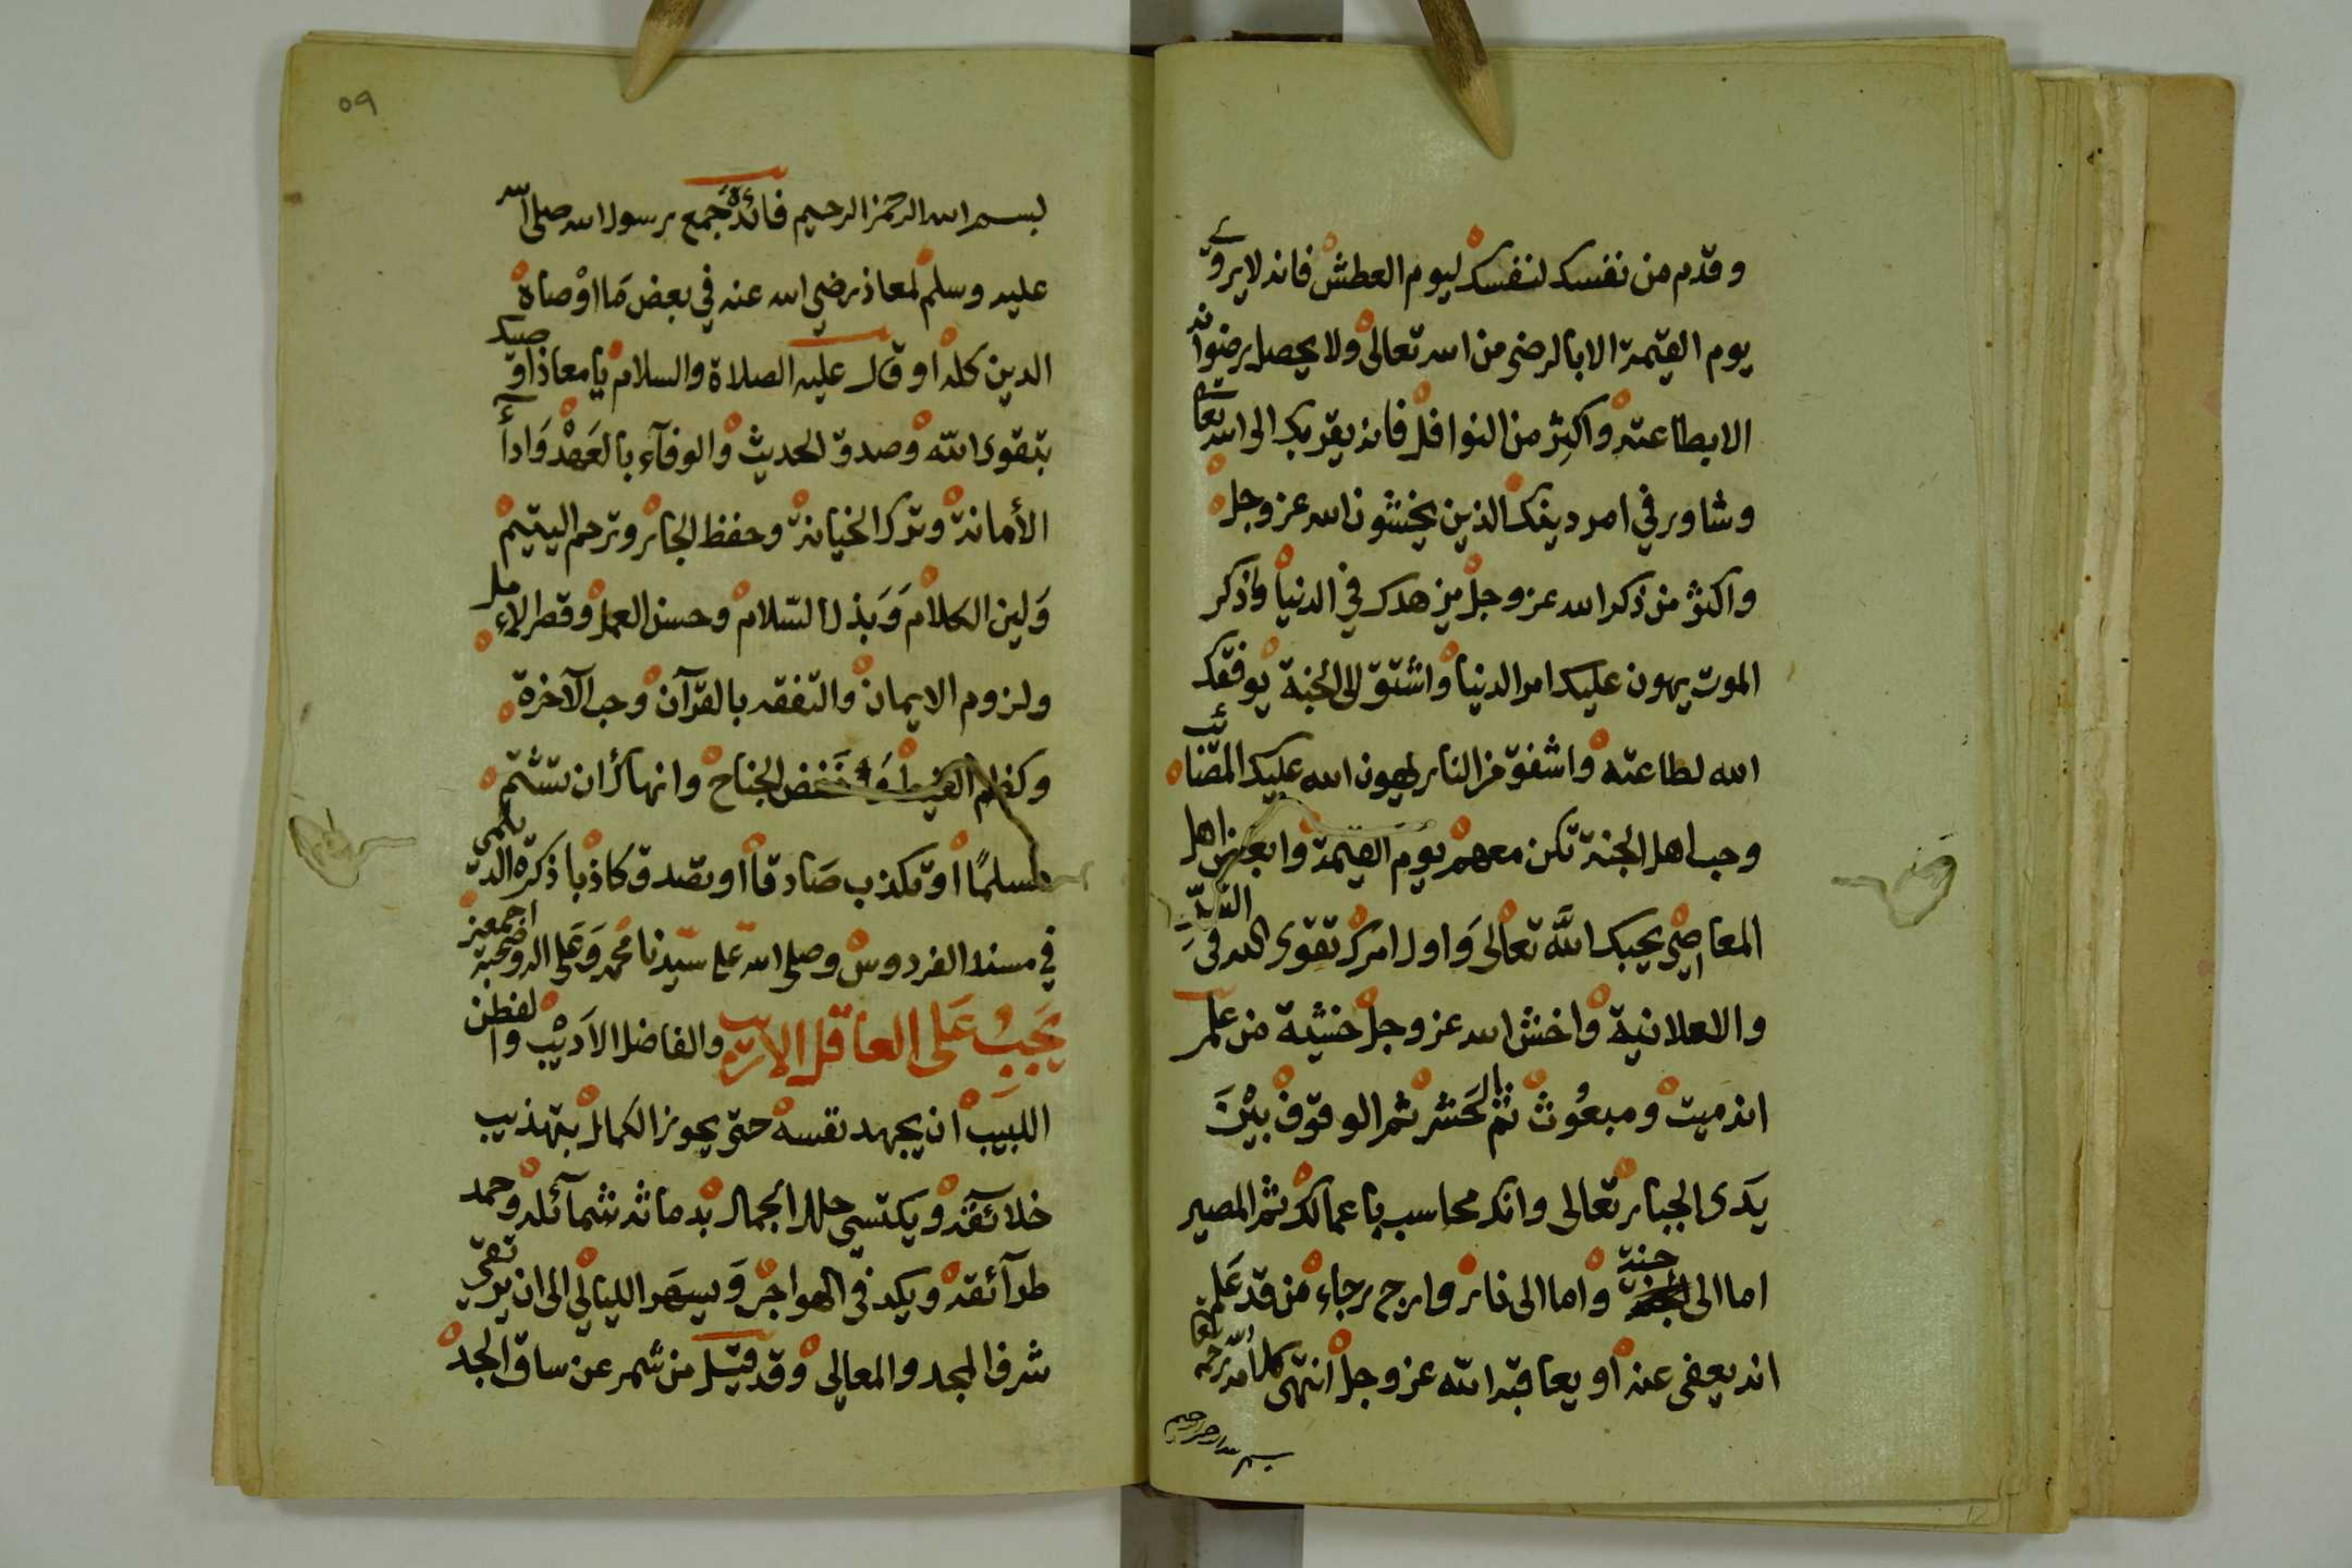 وقدم من نفسك لنفسك ليوم العطش فانه لا يروى
يوم القيمة الا بالرضى من الله تعالى ولا يحصل رضوانه
الا بطاعته واكثر من النوافل فانه يقربك الى الله تعالى
وشاور في امر دينك الذين يخشون الله عز وجل
واكثر من ذكر الله عز وجل يزهدك في الدنيا واذكر
الموت يهون عليك امر الدنيا واشتق الى الجنة يوفقك
الله لطاعته واشفق من النار يهون الله عليك المصائب
وحب اهل الجنة تكن معهم يوم القيمة وابغض اهل
المعاصي يحبك الله تعالى واول امرك تقوى الله في السر
والاعلانية واخش الله عز وجل خشية من علم
انه ميت ومبعوث ثم الحشر ثم الوقوف بين
يدى الجبار تعالى وانك محاسب باعمالك ثم المصير
اما الى جنة واما الى نار وارج رجاء من قد علم
انه يعفى عنه او يعاقبه الله عز وجل انتهى كلامه رحمه الله تعا
بسم الله الرحمن الرحيم
٥٩
بسم الله الرحمن الرحيم فائدة جمع رسول الله صلى الله
عليه وسلم لمعاذ رضي الله عنه في بعض ما اوصاه
الدين كله او قال عليه الصلاة والسلام يا معاذ اوصيك
بتقوى الله وصدق الحديث والوفآء بالعهد وادآء
الأمانة وترك الخيانة وحفظ الجار وترحم اليتيم
ولين الكلام وبذل السلام وحسن العمل وقصر الامل
ولزوم الايمان والتفقه بالقرآن وحب الآخرة
وكظم الغيظ وخفض الجناح وانهاك ان تشتم
مسلمًا او تكذب صادقا او تصدق كاذبا ذكره الديلمى
في مسند الفردوس وصلى الله على سيدنا محمد وعلى اله وصحبه اجمعين
يجب على العاقل الاريب والفاضل الاديب والفطن
اللبيب ان يجهد نفسه حتى يحوز الكمال بتهذيب
خلائقه ويكتسي حلل الجمال بدماثة شمآئله وحمد
طرآئقه ويكد في الهواجر ويسهر الليالي الى ان يرتقى
شرف المجد والمعالى وقد قيل من شمر عن ساق الجد